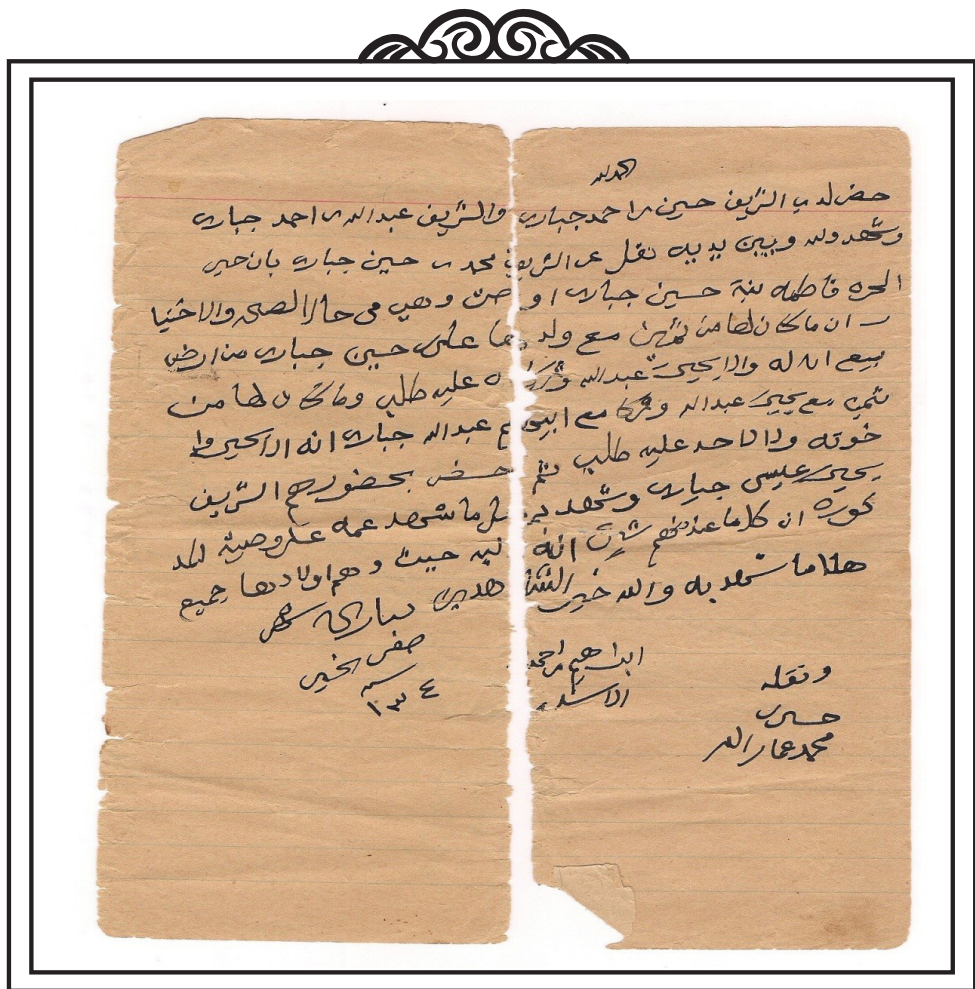 الحمد لله
حضر لدي الشريف حسين بن احمد جباري والشريف عبدالله بن احمد جباري
وشهد ولله وبين يديه نقل عن الشريف محمد بن حسين جباري بان حين
الحره فاطمه بنة حسين جباري اوصت وهي في حال الصحه والاختيا
ر ان ما كان لها من ثمين مع ولدها علي حسين جباري من ارض
بيع انه له والا يحيى عبدالله عليه طلب وما كان لها من
ثمين مع يحيى عبدالله مع ابراهيم عبدالله جباري انه الا يحيى وا
خوته ولا لاحد عليه طلب ثم حضر بحضورهم الشريف
يحيى عيسى جباري وشهد بمثل ما شهد عمه على وصية المذ
كوره ان كلما عندهم انه حيث وهم اولادها جميع
هذا ما شهد به والله خير الشاهدين بتاريخ شهر
صفر الخير
سنه
ابراهيم بن احمد
ونقله
حسين
محمد عمار